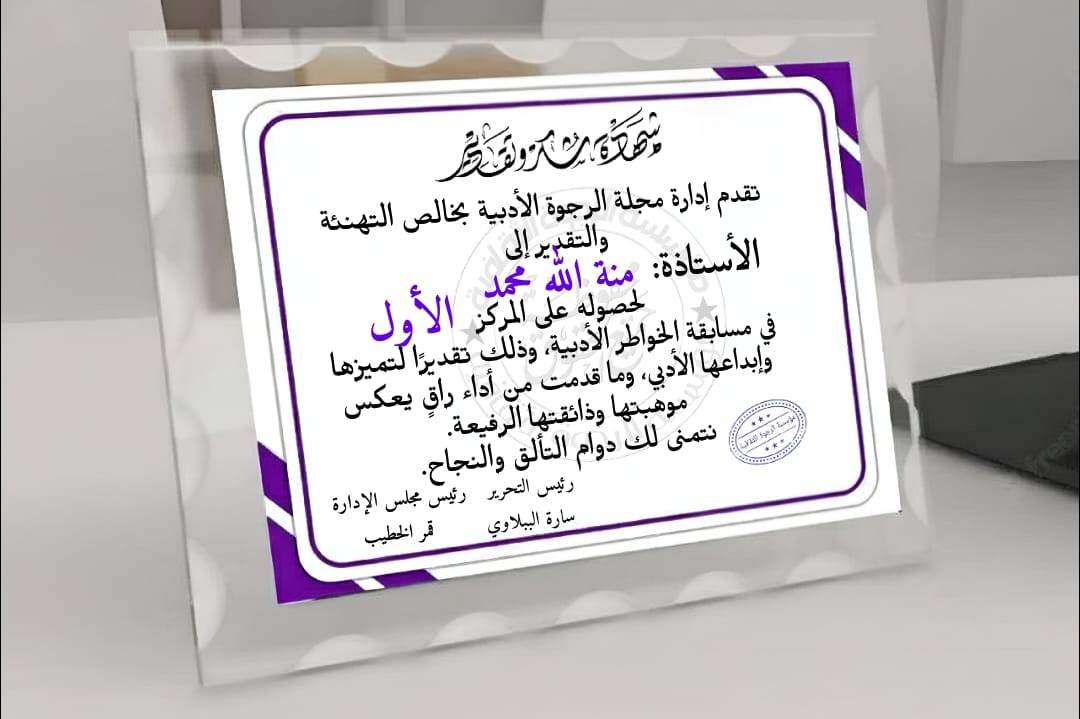 شهادة شكر وتقدير
تقدم إدارة مجلة الرجوة الأدبية بخالص التهنئة
والتقدير إلى
الأستاذة: منة الله محمد
لحصوله على المركز الأول
في مسابقة الخواطر الأدبية، وذلك تقديرًا لتميزها
وإبداعها الأدبي، وما قدمت من أداء راقٍ يعكس
موهبتها وذائقتها الرفيعة.
نتمنى لك دوام التألق والنجاح.
رئيس التحرير رئيس مجلس الإدارة
سارة الببلاوي قمر الخطيب
مؤسسة الرجوة الثقافية